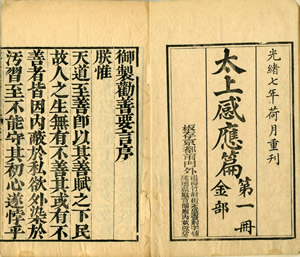 光緒七年荷月重刊
太上感應篇
第一冊
金部
板存京都前門外
御製勸善要言序
朕惟
天道至善卽以其善賦之下民
故人之生無有不善其或有不
善者皆因內蔽於私欲外染於
汚習至不能守其初心遂悖乎